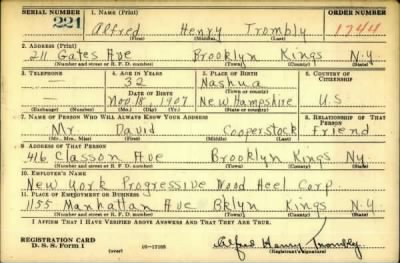 SERIAL NUMBER 1. NAME (Print) ORDER NUMBER
221 Alfred Henry Trombly 1744
(First) (Middle) (Last)
2. ADDRESS (Print)
211 Gates Ave Brooklyn Kings N.Y.
(Number and street or R. F. D. number) (Town) (County) (State)
3. TELEPHONE 4. AGE IN YEARS 5. PLACE OF BIRTH 6. COUNTRY OF CITIZENSHIP
32 Nashua
DATE OF BIRTH (Town or county)
Nov 18, 1907 New Hampshire U S
(Exchange) (Number) (Mo.) (Day) (Yr.) (State or country)
7. NAME OF PERSON WHO WILL ALWAYS KNOW YOUR ADDRESS 8. RELATIONSHIP OF THAT PERSON
Mr David Cooperstock friend
(Mr., Mrs., Miss) (First) (Middle) (Last)
9. ADDRESS OF THAT PERSON
416 Classon Ave Brooklyn Kings Ny
(Number and street or R. F. D. number) (Town) (County) (State)
10. EMPLOYER'S NAME
New York Progressive Wood Heel Corp.
11. PLACE OF EMPLOYMENT OR BUSINESS
1155 Manhattan Ave Bklyn Kings N.Y.
(Number and street or R. F. D. number) (Town) (County) (State)
I AFFIRM THAT I HAVE VERIFIED ABOVE ANSWERS AND THAT THEY ARE TRUE.
REGISTRATION CARD
D. S. S. Form 1 (over) 16-17105 Alfred Henry Trombly
(Registrant's signature)